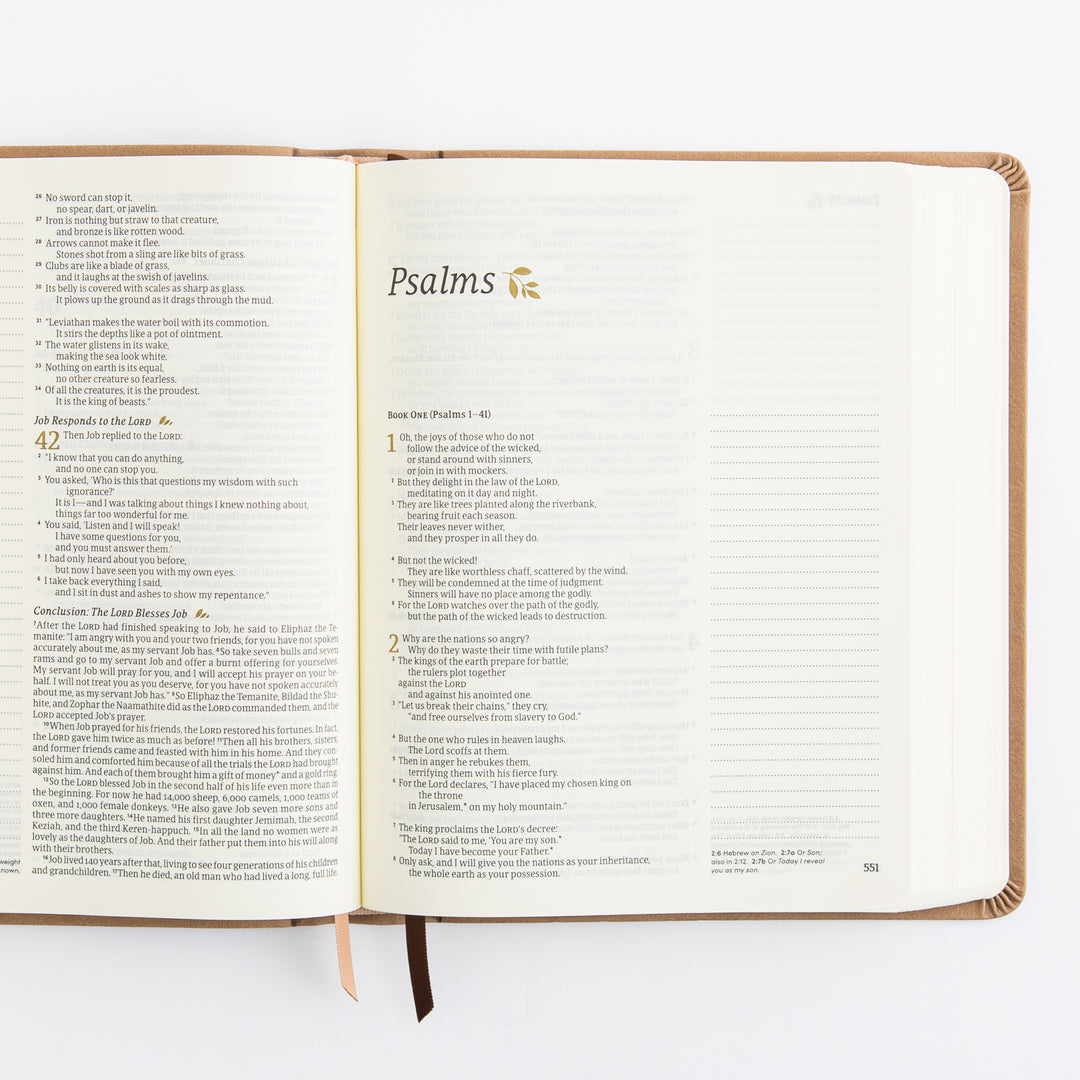 26 No sword can stop it,
no spear, dart, or javelin.
27 Iron is nothing but straw to that creature,
and bronze is like rotten wood.
28 Arrows cannot make it flee.
Stones shot from a sling are like bits of grass.
29 Clubs are like a blade of grass,
and it laughs at the swish of javelins.
30 Its belly is covered with scales as sharp as glass.
It plows up the ground as it drags through the mud.
31 “Leviathan makes the water boil with its commotion.
It stirs the depths like a pot of ointment.
32 The water glistens in its wake,
making the sea look white.
33 Nothing on earth is its equal,
no other creature so fearless.
34 Of all the creatures, it is the proudest.
It is the king of beasts.”
Job Responds to the LORD
42 Then Job replied to the LORD:
2 “I know that you can do anything,
and no one can stop you.
3 You asked, ‘Who is this that questions my wisdom with such
ignorance?’
It is I—and I was talking about things I knew nothing about,
things far too wonderful for me.
4 You said, ‘Listen and I will speak!
I have some questions for you,
and you must answer them.’
5 I had only heard about you before,
but now I have seen you with my own eyes.
6 I take back everything I said,
and I sit in dust and ashes to show my repentance.”
Conclusion: The LORD Blesses Job
7 After the LORD had finished speaking to Job, he said to Eliphaz the Te-
manite: “I am angry with you and your two friends, for you have not spoken
accurately about me, as my servant Job has. 8 So take seven bulls and seven
rams and go to my servant Job and offer a burnt offering for yourselves.
My servant Job will pray for you, and I will accept his prayer on your be-
half. I will not treat you as you deserve, for you have not spoken accurately
about me, as my servant Job has.” 9 So Eliphaz the Temanite, Bildad the Shu-
hite, and Zophar the Naamathite did as the LORD commanded them, and the
LORD accepted Job’s prayer.
10 When Job prayed for his friends, the LORD restored his fortunes. In fact,
the LORD gave him twice as much as before! 11 Then all his brothers, sisters,
and former friends came and feasted with him in his home. And they con-
soled him and comforted him because of all the trials the LORD had brought
against him. And each of them brought him a gift of money* and a gold ring.
12 So the LORD blessed Job in the second half of his life even more than in
the beginning. For now he had 14,000 sheep, 6,000 camels, 1,000 teams of
oxen, and 1,000 female donkeys. 13 He also gave Job seven more sons and
three more daughters. 14 He named his first daughter Jemimah, the second
Keziah, and the third Keren-happuch. 15 In all the land no women were as
lovely as the daughters of Job. And their father put them into his will along
with their brothers.
16 Job lived 140 years after that, living to see four generations of his children
and grandchildren. 17 Then he died, an old man who had lived a long, full life.
weight
nown.
Psalms
BOOK ONE (Psalms 1–41)
1 Oh, the joys of those who do not
follow the advice of the wicked,
or stand around with sinners,
or join in with mockers.
2 But they delight in the law of the LORD,
meditating on it day and night.
3 They are like trees planted along the riverbank,
bearing fruit each season.
Their leaves never wither,
and they prosper in all they do.
4 But not the wicked!
They are like worthless chaff, scattered by the wind.
5 They will be condemned at the time of judgment.
Sinners will have no place among the godly.
6 For the LORD watches over the path of the godly,
but the path of the wicked leads to destruction.
2 Why are the nations so angry?
Why do they waste their time with futile plans?
2 The kings of the earth prepare for battle;
the rulers plot together
against the LORD
and against his anointed one.
3 “Let us break their chains,” they cry,
“and free ourselves from slavery to God.”
4 But the one who rules in heaven laughs.
The Lord scoffs at them.
5 Then in anger he rebukes them,
terrifying them with his fierce fury.
6 For the Lord declares, “I have placed my chosen king on
the throne
in Jerusalem,* on my holy mountain.”
7 The king proclaims the LORD’s decree:
“The LORD said to me, ‘You are my son.*
Today I have become your Father.*
8 Only ask, and I will give you the nations as your inheritance,
the whole earth as your possession.
2:6 Hebrew on Zion. 2:7a Or Son;
also in 2:12. 2:7b Or Today I reveal
you as my son.
551